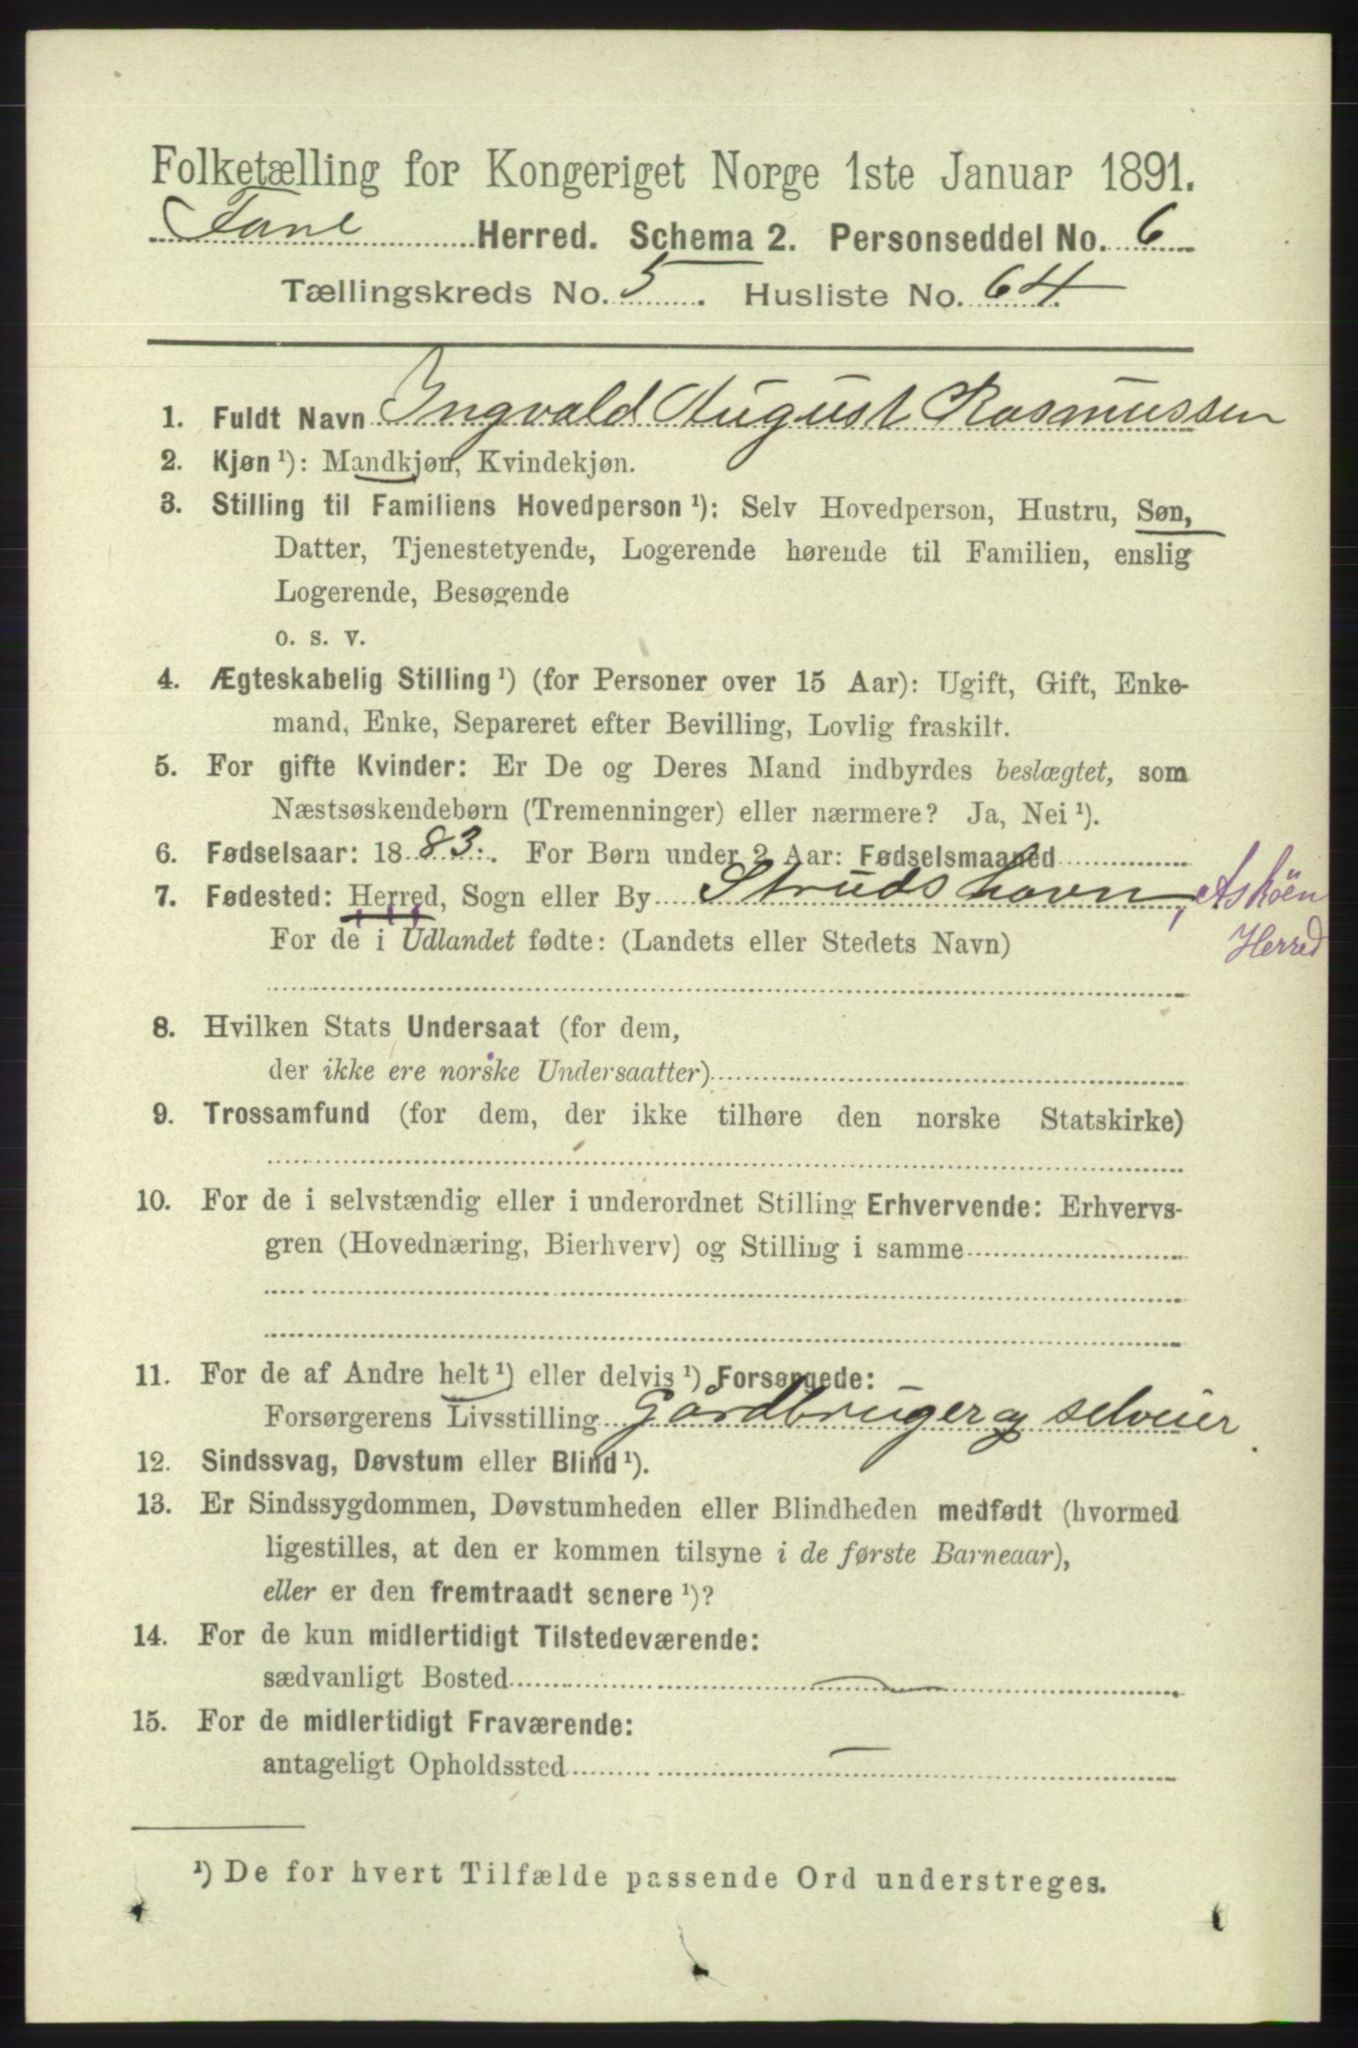 Folketælling for Kongeriget Norge 1ste Januar 1891.
Fane Herred. Schema 2. Personseddel No. 6
Tællingskreds No. 5. Husliste No. 64.
1. Fuldt Navn Ingvald August Rasmussen
2. Kjøn ¹): Mandkjøn, Kvindekjøn.
3. Stilling til Familiens Hovedperson ¹): Selv Hovedperson, Hustru, Søn,
Datter, Tjenestetyende, Logerende hørende til Familien, enslig
Logerende, Besøgende
o. s. v.
4. Ægteskabelig Stilling ¹) (for Personer over 15 Aar): Ugift, Gift, Enke-
mand, Enke, Separeret efter Bevilling, Lovlig fraskilt.
5. For gifte Kvinder: Er De og Deres Mand indbyrdes beslægtet, som
Næstsøskendebørn (Tremenninger) eller nærmere? Ja, Nei ¹).
6. Fødselsaar: 1883. For Børn under 2 Aar: Fødselsmaaned
7. Fødested: Herred, Sogn eller By Strudshavn, Askøen
Herred
For de i Udlandet fødte: (Landets eller Stedets Navn)
8. Hvilken Stats Undersaat (for dem,
der ikke ere norske Undersaatter)
9. Trossamfund (for dem, der ikke tilhøre den norske Statskirke)
10. For de i selvstændig eller i underordnet Stilling Erhvervende: Erhvervs-
gren (Hovednæring, Bierhverv) og Stilling i samme
11. For de af Andre helt ¹) eller delvis ¹) Forsørgede:
Forsørgerens Livsstilling Gårdbruger og selveier.
12. Sindssvag, Døvstum eller Blind ¹).
13. Er Sindssygdommen, Døvstumheden eller Blindheden medfødt (hvormed
ligestilles, at den er kommen tilsyne i de første Barneaar),
eller er den fremtraadt senere ¹)?
14. For de kun midlertidigt Tilstedeværende:
sædvanligt Bosted
15. For de midlertidigt Fraværende:
antageligt Opholdssted
¹) De for hvert Tilfælde passende Ord understreges.